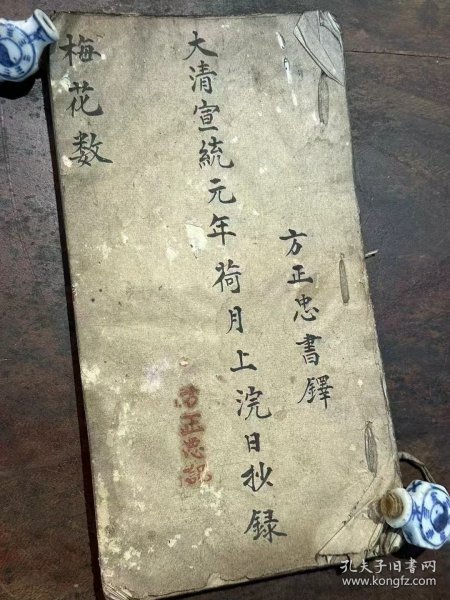 方正忠書鐸
大清宣統元年荷月上浣日抄録
梅花数
方正忠記
孔夫子旧书网
www.kongfz.com